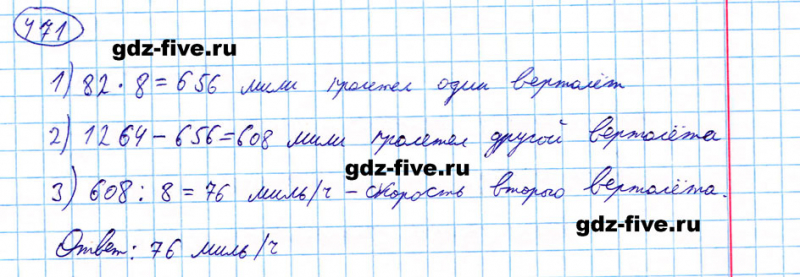 471
gdz-five.ru
1) 82 · 8 = 656 мили пролетел один вертолёт
2) 1264 - 656 = 608 мили пролетел другой вертолёта
gdz-five.ru
3) 608 : 8 = 76 миль/ч - скорость второго вертолёта.
gdz-five.ru
Ответ: 76 миль/ч